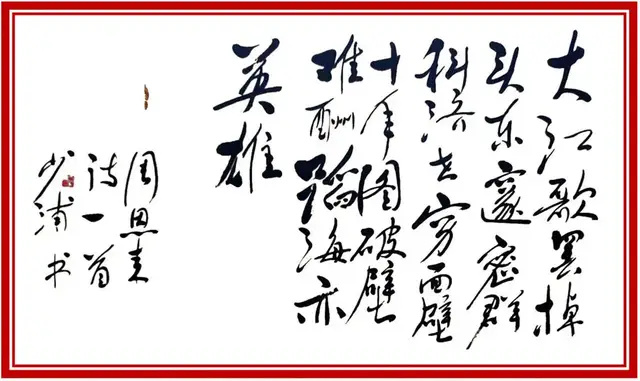 大江歌罢掉
头东邃密群
科济世穷面壁
十年图破壁
难酬蹈海亦
英雄
周恩来
诗一首
少浦书